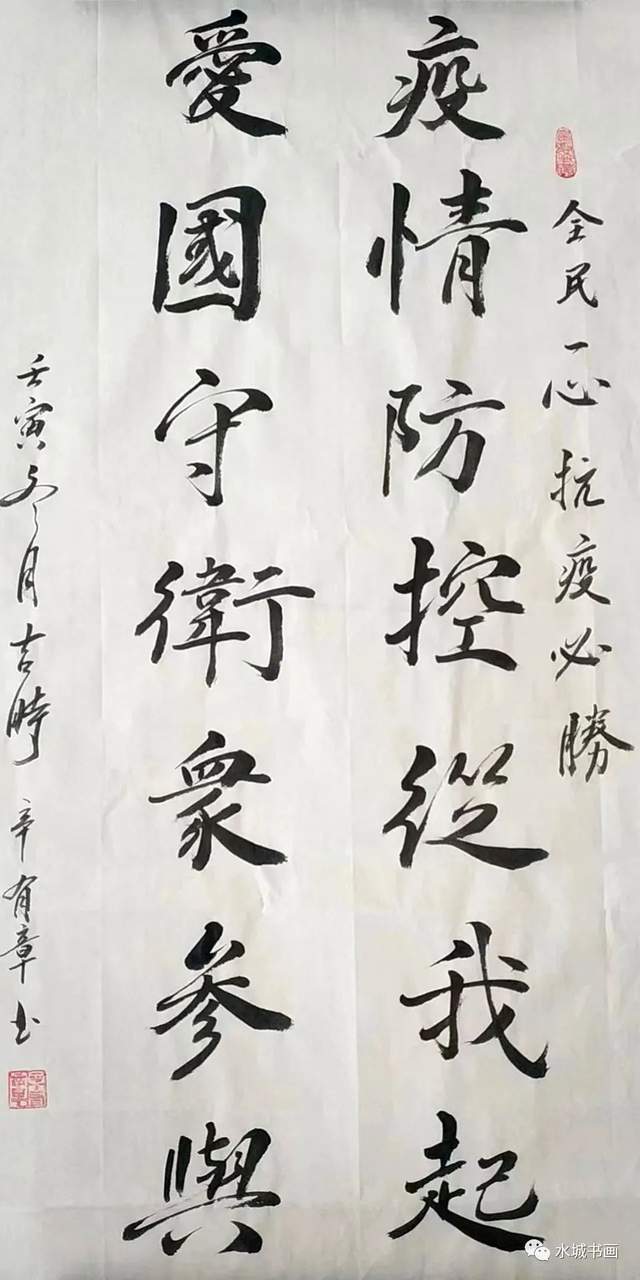 全民一心抗疫必勝
疫情防控從我起
愛國守衛衆參與
壬寅冬月吉時 辛有章书
水城书画